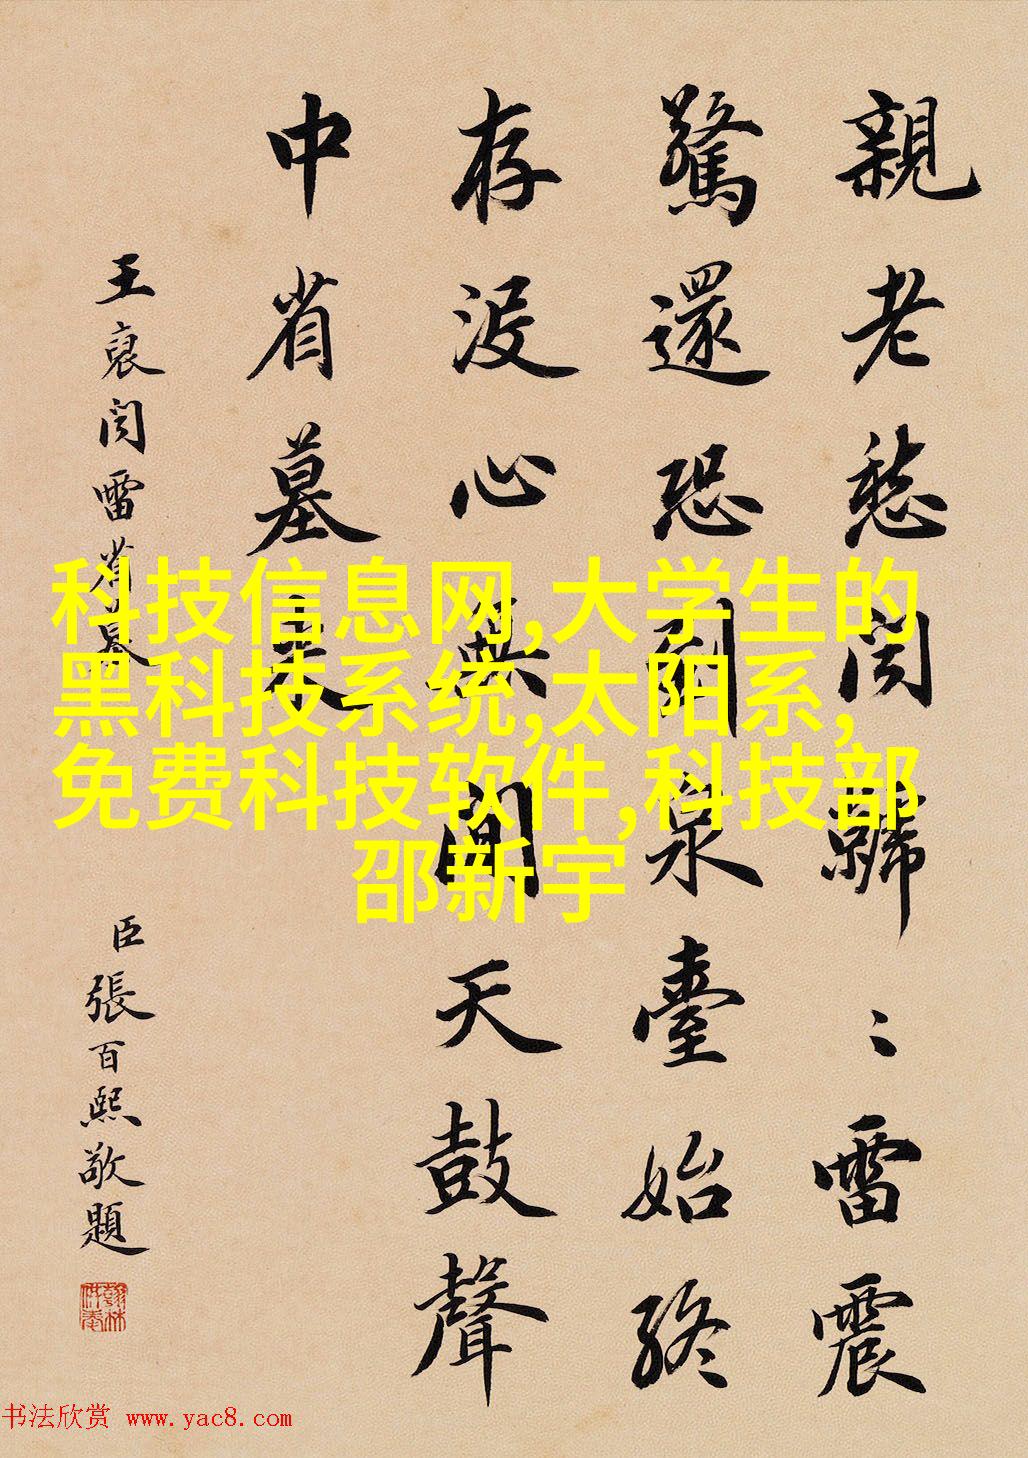 親老愁闻〻雷震
驚還恐到泉臺始終
存没心無間天鼓聲
中省墓来
王裒闻雷省墓
臣張百熙敬題
翰林供奉
科技信息网,大学生的
黑科技系统,太阳系,
免费科技软件,科技部
邵新宇
书法欣赏 www.yac8.com